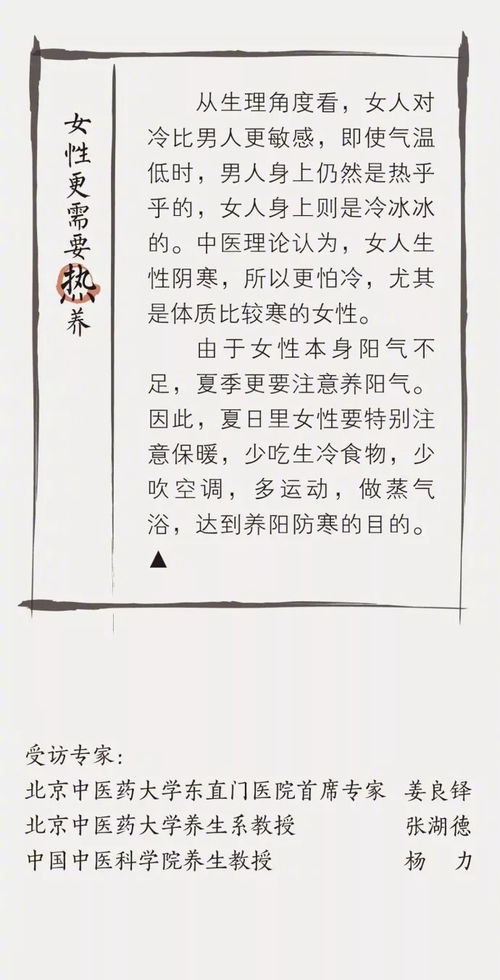 女性更需要热养
从生理角度看，女人对
冷比男人更敏感，即使气温
低时，男人身上仍然是热乎
乎的，女人身上则是冷冰冰
的。中医理论认为，女人生
性阴寒，所以更怕冷，尤其
是体质比较寒的女性。
由于女性本身阳气不
足，夏季更要注意养阳气。
因此，夏日里女性要特别注
意保暖，少吃生冷食物，少
吹空调，多运动，做蒸气
浴，达到养阳防寒的目的。
▲
受访专家：
北京中医药大学东直门医院首席专家 姜良铎
北京中医药大学养生系教授 张湖德
中国中医科学院养生教授 杨 力